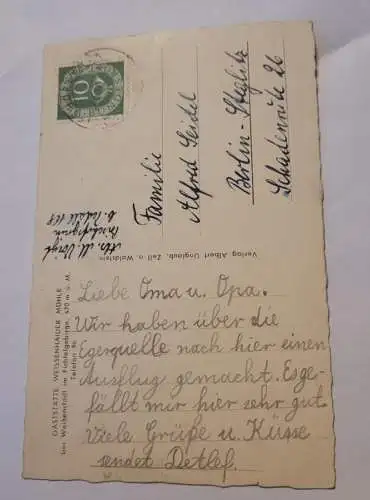 GASTSTÄTTE WEISSENHAIDER MÜHLE
bei Weißenstadt im Fichtelgebirge, 670 m ü. M.
Telefon
Liebe Oma u. Opa.
Wir haben über die
Egerquelle nach hier einen
Ausflug gemacht. Es ge-
fällt mir hier sehr gut.
Viele Grüße u. Küsse
sendet Detlef.
Verlag Albert Unglaub, Zell a. Waldstein
Abs.
10
Familie
Alfred Seidel
Berlin-Steglitz
26